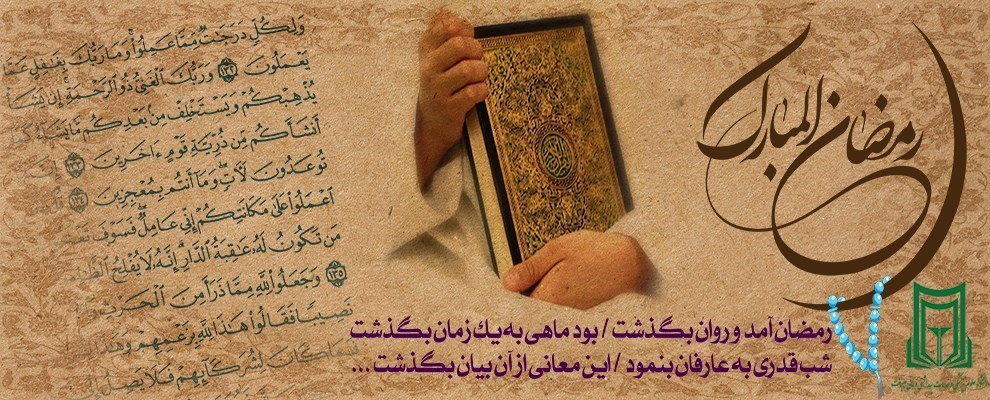 وَلِكُلٍّ دَرَجَـٰتٌ مِّمَّا عَمِلُوا۟ وَمَا رَبُّكَ بِغَـٰفِلٍ عَمَّا
يَعْمَلُونَ ١٣٢ وَرَبُّكَ ٱلْغَنِىُّ ذُو ٱلرَّحْمَةِ إِن يَشَأْ
يُذْهِبْكُمْ وَيَسْتَخْلِفْ مِنۢ بَعْدِكُم مَّا يَشَآءُ كَمَآ
أَنشَأَكُم مِّن ذُرِّيَّةِ قَوْمٍ ءَاخَرِينَ ١٣٣
تُوعَدُونَ لَـَٔاتٍ وَمَآ أَنتُم بِمُعْجِزِينَ ١٣٤
ٱعْمَلُوا۟ عَلَىٰ مَكَانَتِكُمْ إِنِّى عَامِلٌ فَسَوْفَ
مَن تَكُونُ لَهُۥ عَـٰقِبَةُ ٱلدَّارِ إِنَّهُۥ لَا يُفْلِحُ
١٣٥ وَجَعَلُوا۟ لِلَّهِ مِمَّا ذَرَأَ مِنَ ٱلْحَرْثِ
نَصِيبًا فَقَالُوا۟ هَـٰذَا لِلَّهِ بِزَعْمِهِمْ وَهَـٰذَا
فَمَا كَانَ لِشُرَكَآئِهِمْ فَلَا يَصِلُ
رمضان المبارك
رمضان آمد و روان بگذشت / بود ماهی به یك زمان بگذشت
شب قدری به عارفان بنمود / این معانی از آن بیان بگذشت ...